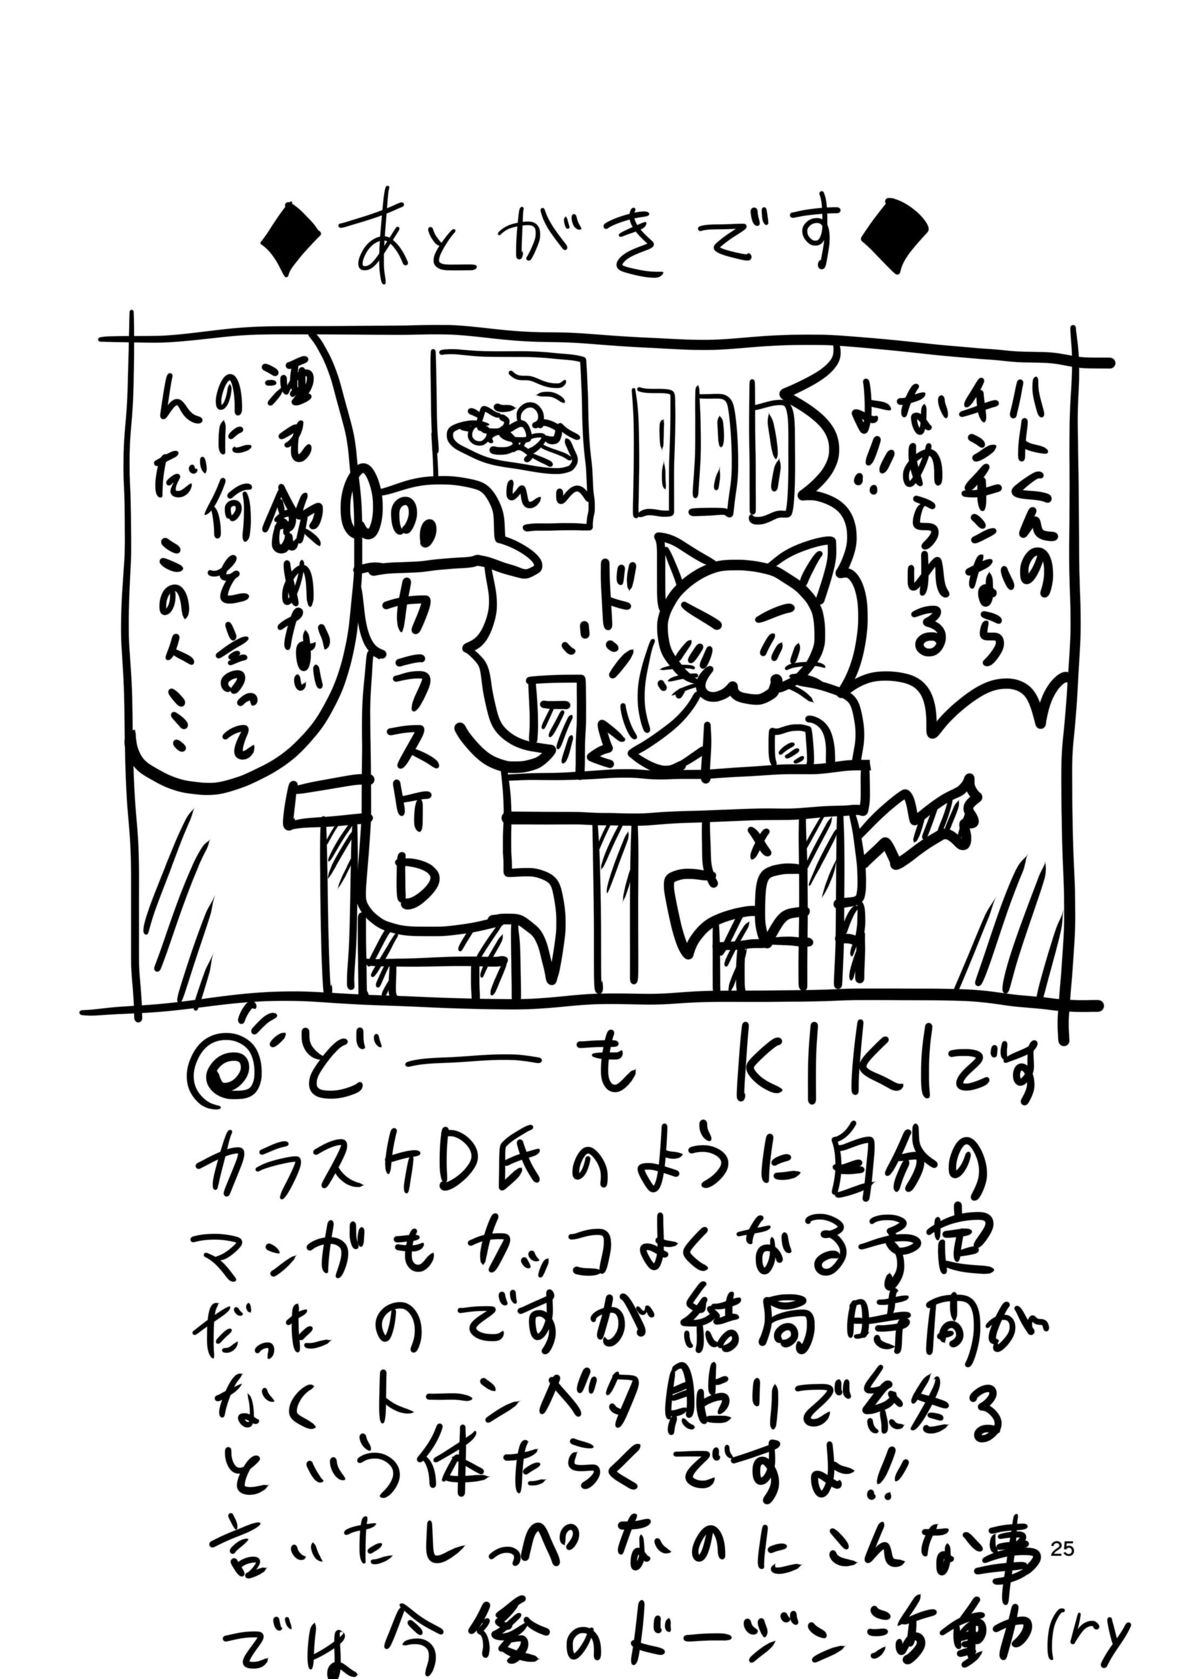 ◆あとがきです◆
ハトくんの
チンチンなら
なめられる
よ!!
ドンッ
酒も飲めない
のに何を言って
んだこの人……
カラスケD
X
◎どーも KIKIです
カラスケD氏のように自分の
マンガもカッコよくなる予定
だったのですが結局時間が
なくトーンベタ貼りで終る
という体たらくですよ!!
言いたしっぺなのにこんな事
では今後のドージン活動(ry
25